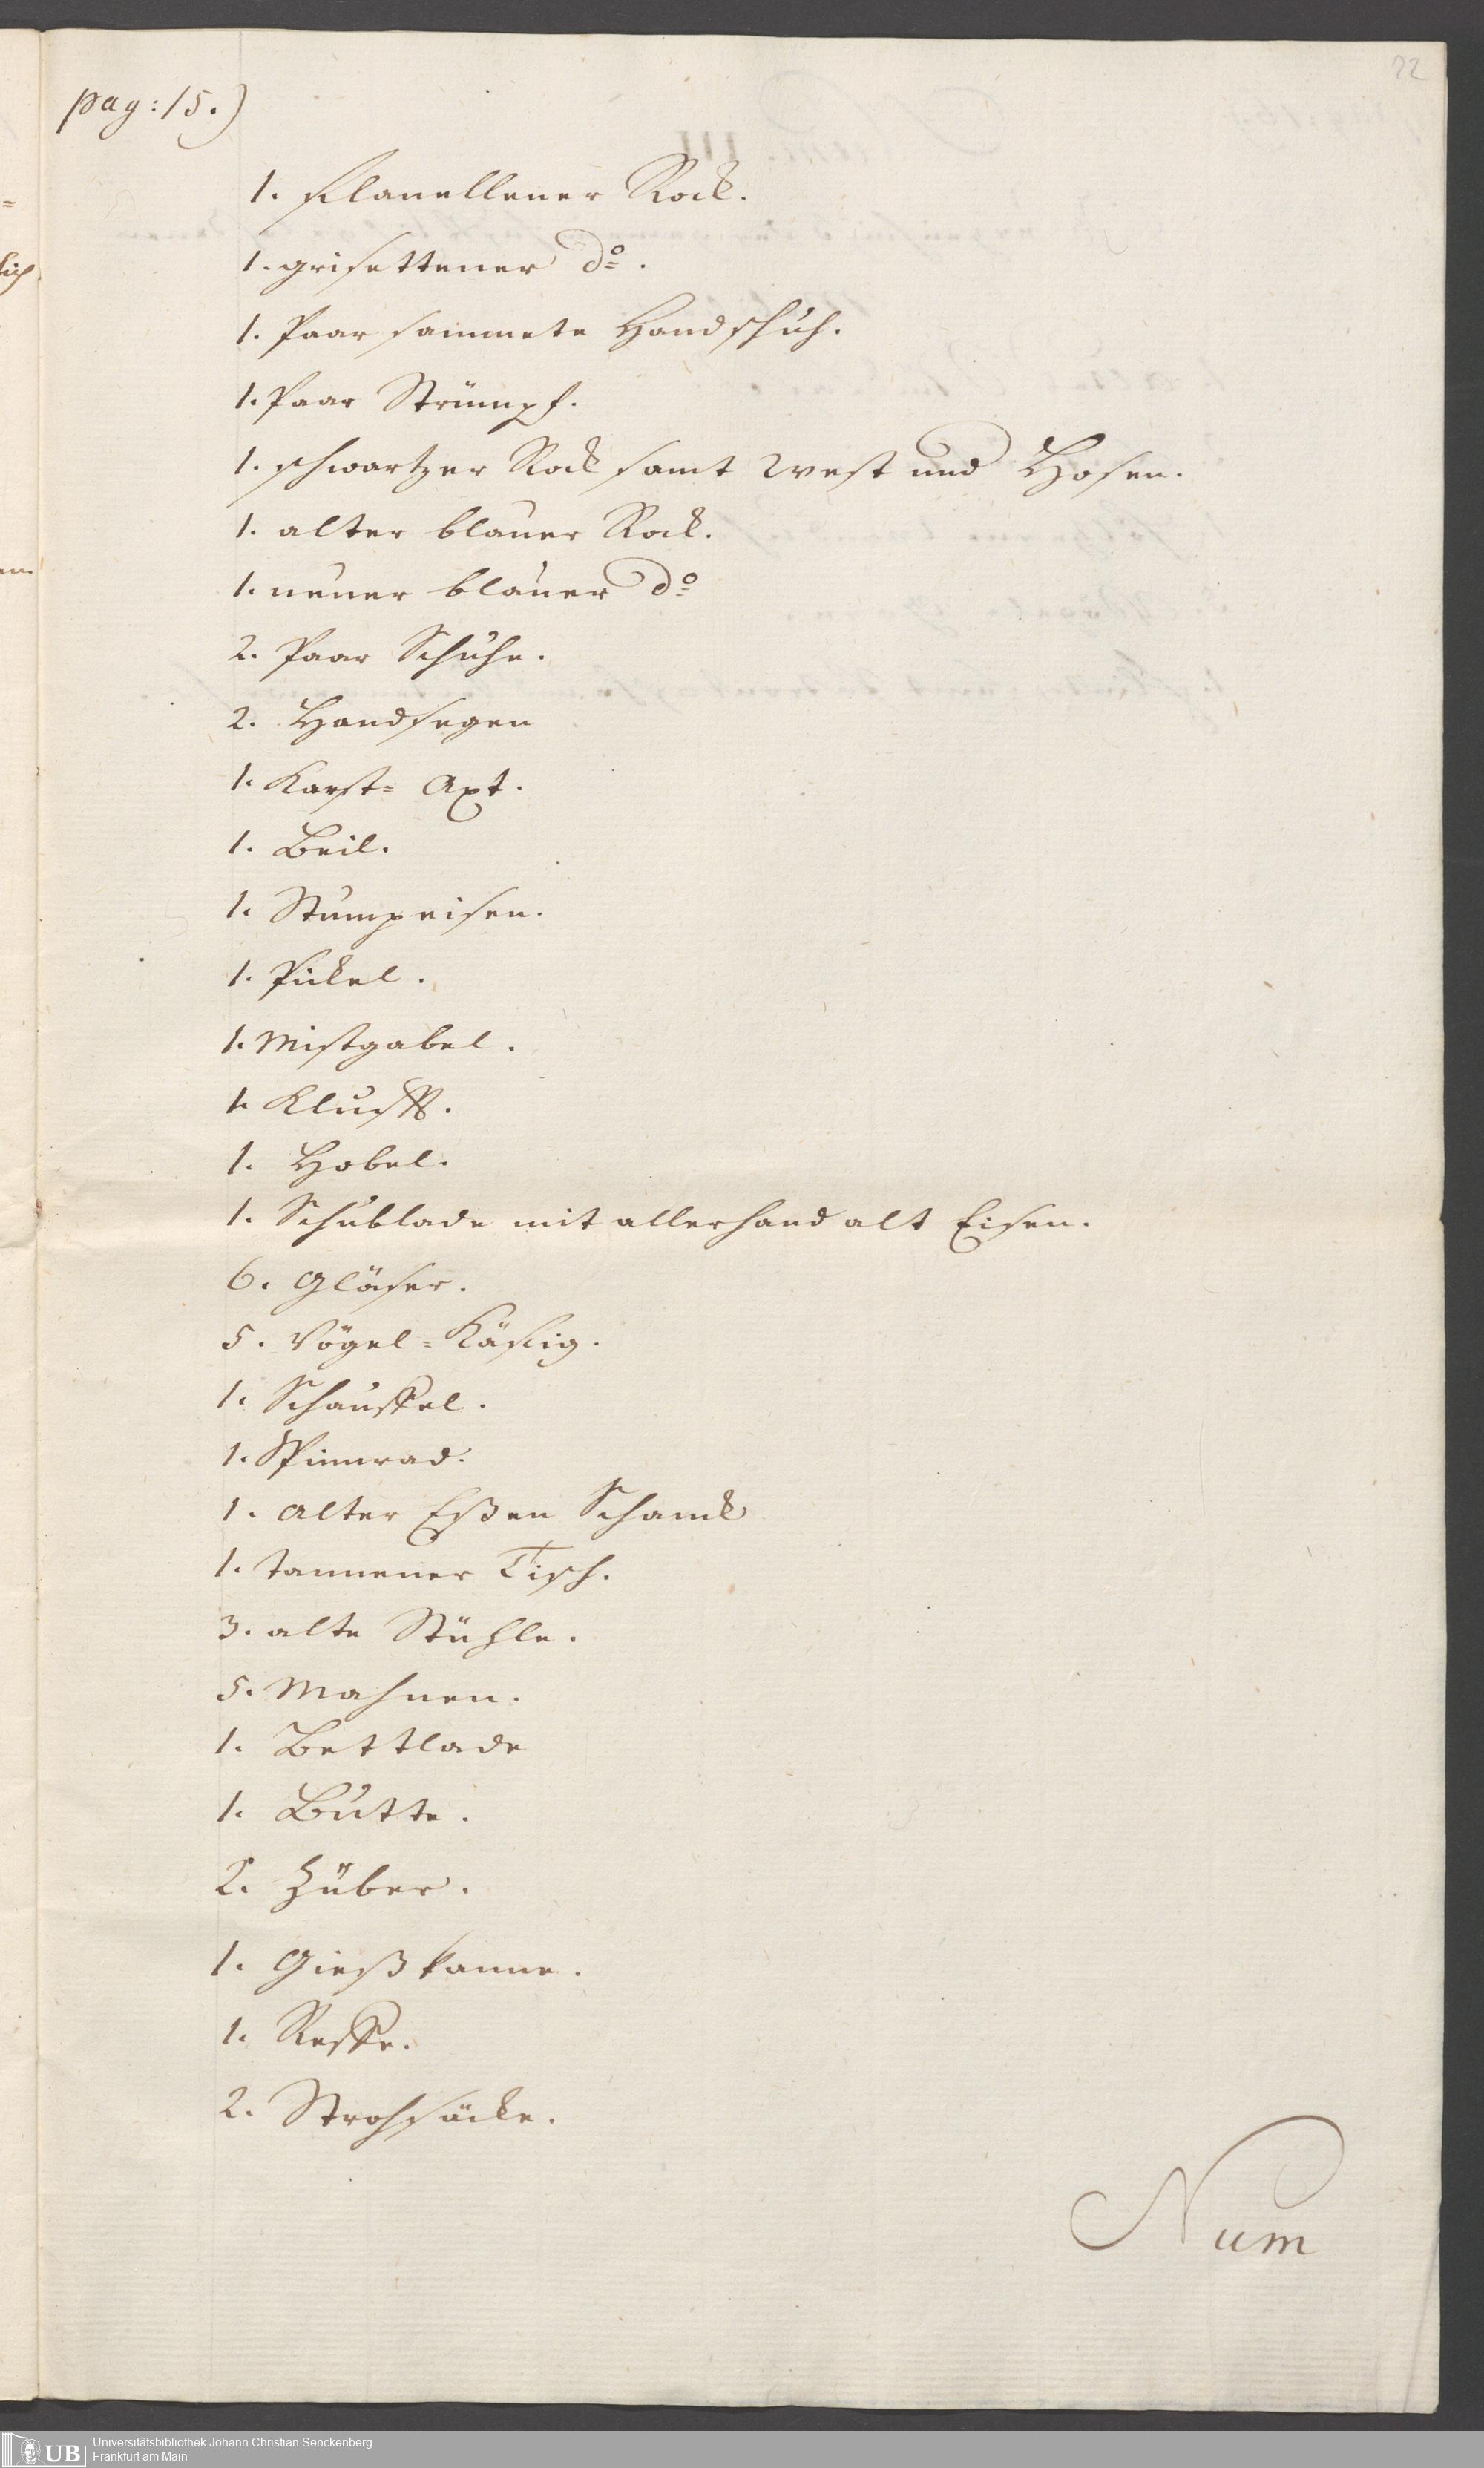 22
pag: 15.)
1. flanellener Rock.
1. grisettener do.
1. Paar sammete Handschuh.
1. Paar Strümpf.
1. schwartzer Rock samt West und Hosen.
1. alter blauer Rock.
1. neuer blauer do
2. Paar Schuhe.
2. Handsegen
1. Karst= Axt.
1. Beil.
1. Stumpeisen.
1. Pickel.
1. Mistgabel.
1. Klufft.
1. Hobel.
1. Schublade mit allerhand alt Eisen.
6. Gläser.
5. Vögel=Käfig.
1. Schauffel.
1. Spinnrad.
1. alter Eßen Schanck
1. tannener Tisch.
3. alte Stühle.
5. Mahnen.
1. Bettlade
1. Butte.
2. Züber.
1. Gießkanne.
1. Reffe.
2. Strohsäcke.
Num
UB Universitätsbibliothek Johann Christian Senckenberg
Frankfurt am Main